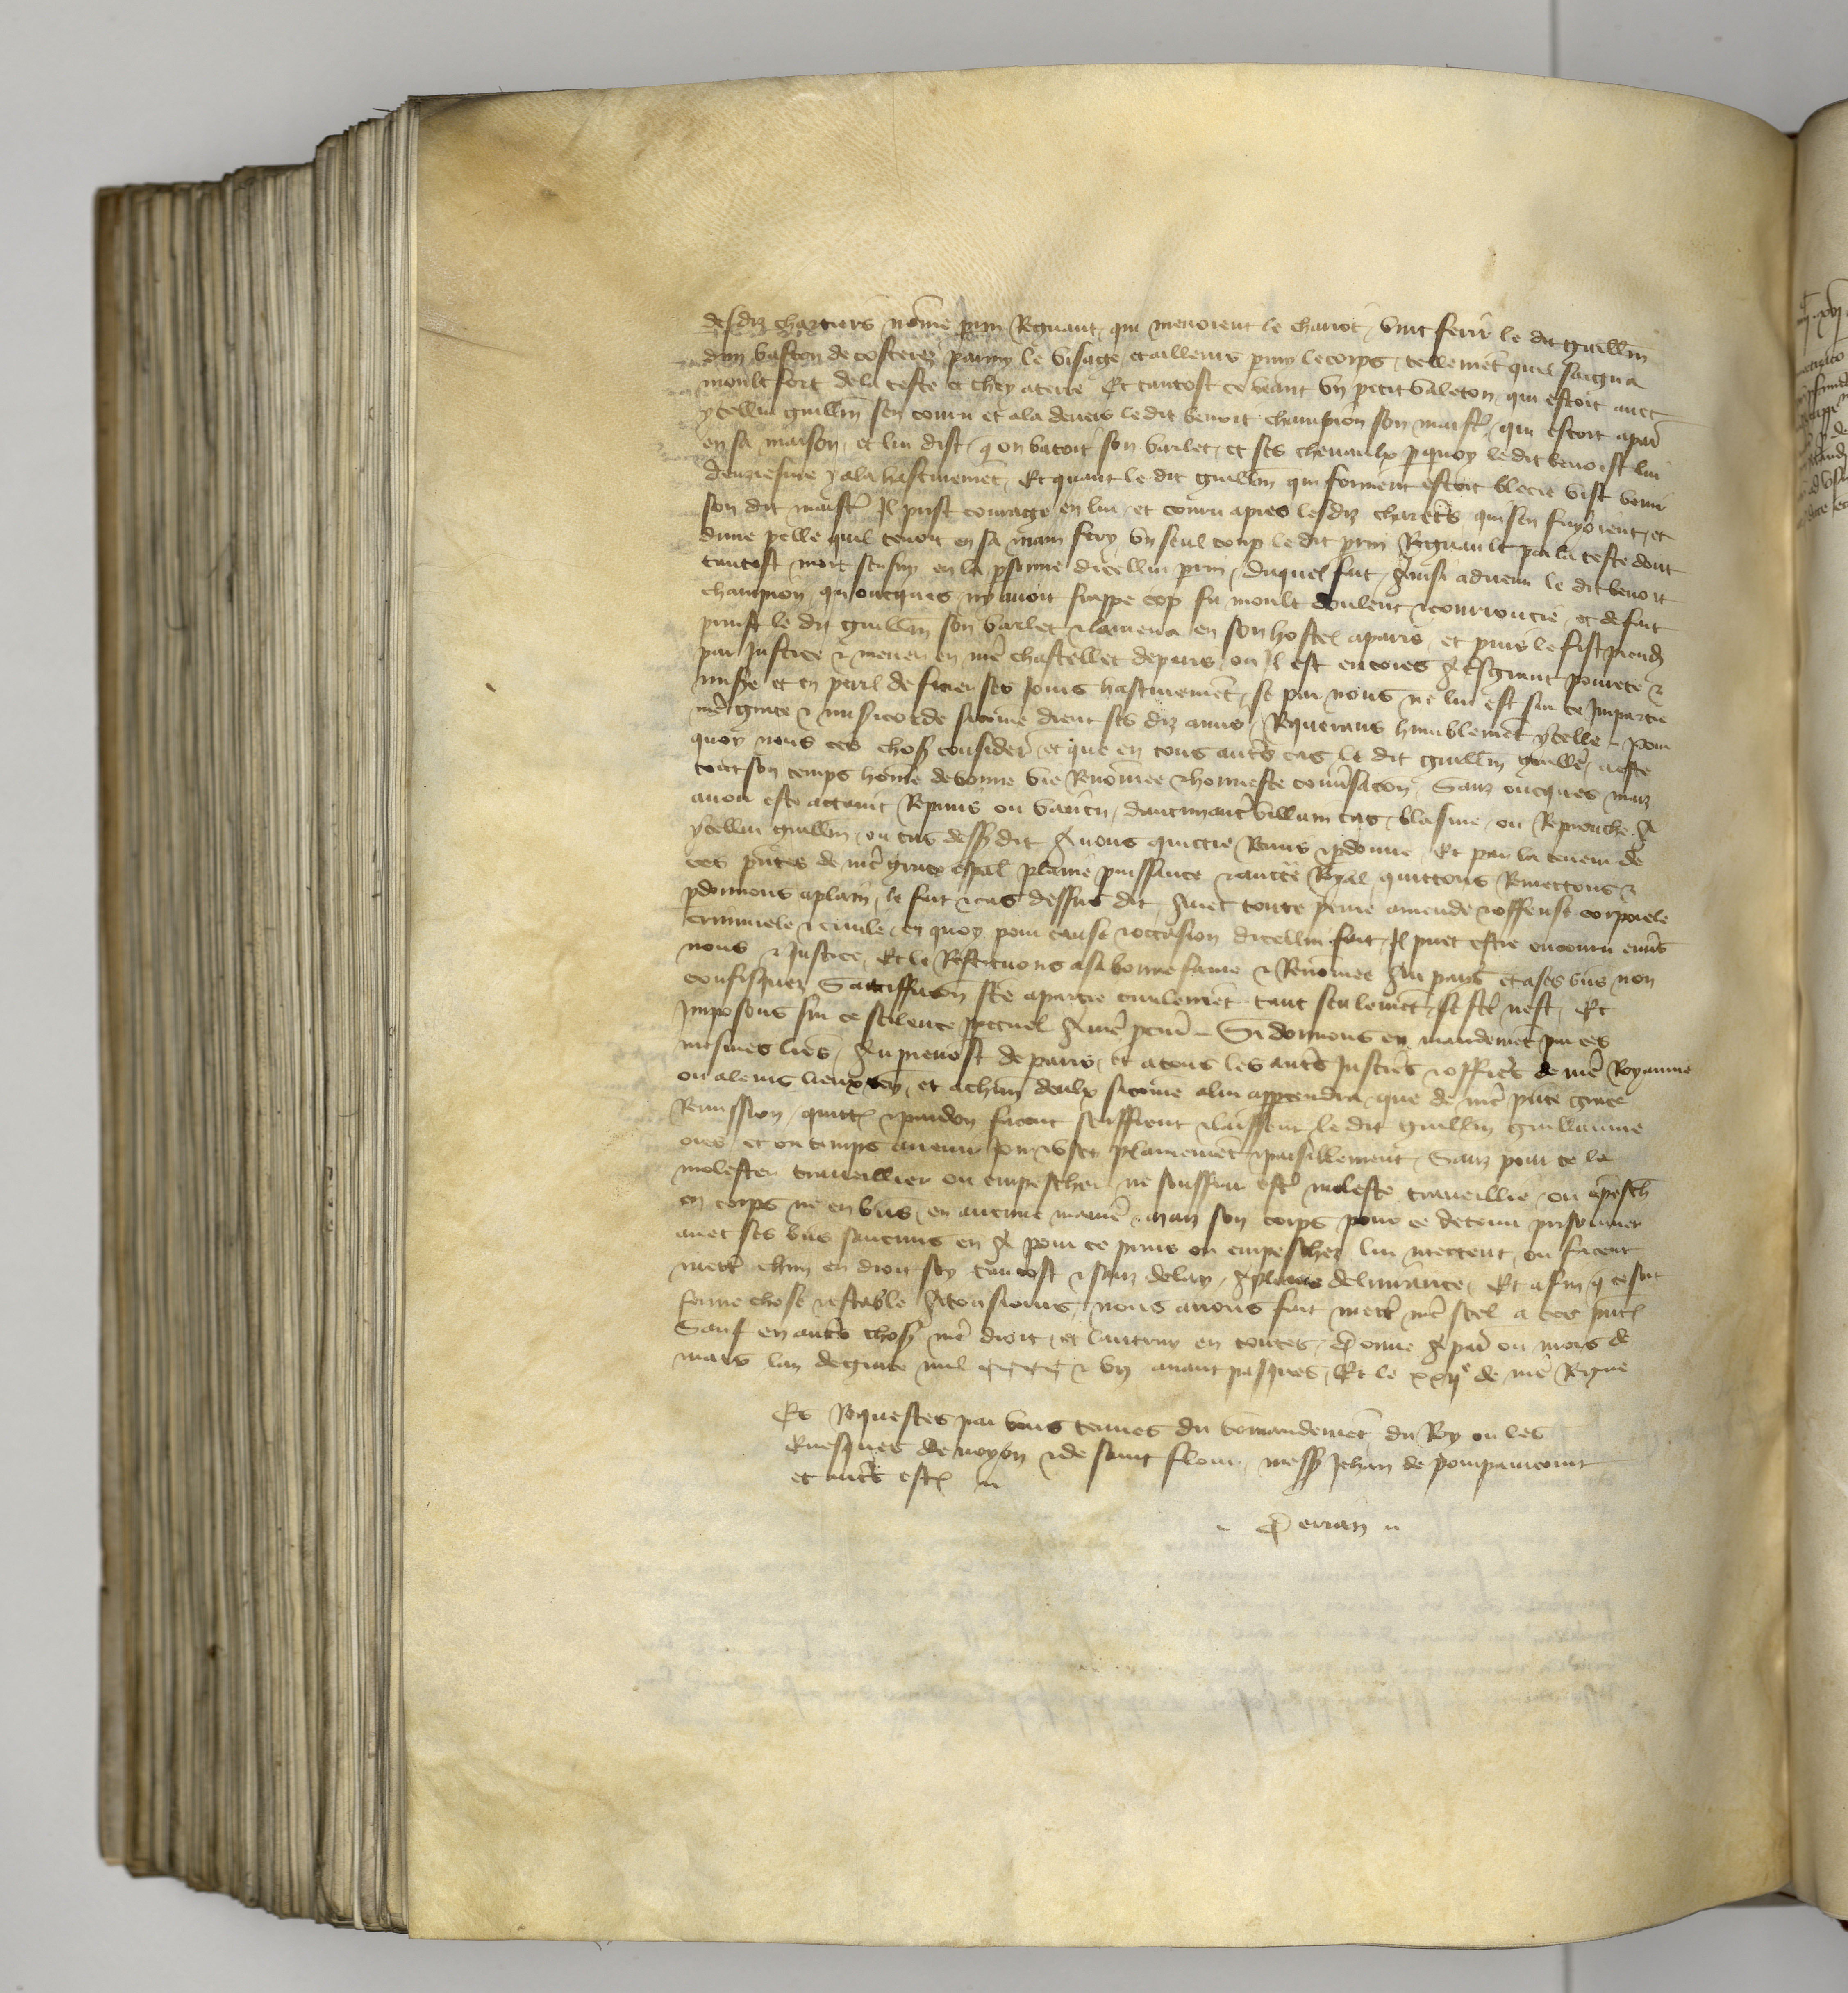 desdiz charetiers nōme prin Regnaut qui menoient le chariot vint ferir le dit guillm̄
dun baston de costerez parmy le visage et ailleurs pmy le corps tellemēt quil saigna
moult fort de la teste et chey a terre Et tantost ce veant vn petit valeton qui estoit auec
ycellui guillm̄ sen couru et ala deuers le dit benoit champion son maistr̄ qui estoit a par̄
en sa maison et lui dist q̄ on batoit son varlet et ses cheuaulx pquoy le dit benoist lui
deuziesme y ala hastiuemēt Et quant le dit guillm̄ qui formēt estoit blecie vist venir
son dit maistr̄ Il prist courage en lui et couru apres lesdiz charet̄s qui sen fuyoient et
dune pelle quil tenoit en sa main fery vn seul coup le dit prin Regnault par la teste dont
tantost mort sensuy en la psonne dicellui prin duquel fait Ainsi aduenu le dit benoit
champion qui oncques ny auoit frappe cop fu moult doulent & courroucie et de fait
prinst le dit guillm̄ son varlet & lamena en son hostel a paris et puis le fist prendr̄
par Justice & mener en nr̄e chastellet de paris ou Il est encores A tresgrant pourete &
mis̄e et en peril de finer ses Jours hastiuemēt se par nous ne lui est sur ce Impartie
nr̄e grace & misīcorde sicōme dient ses diz amis Requerans humblemēt ycelle Pour
quoy nous ces chos̄ consider̄ et que en tous autr̄s cas le dit guillm̄ a este
tout son temps hōme de bonne vie Renōmee & honneste conūsacōn Sanz oncques mais
auoir este attaint Repris ou vaincu daucun autr̄ villain cas blasme ou Reprouche A
ycellui guillm̄ ou cas dess̄ dit Auons quictie Remis & pdonne Et par la teneur de
ces pn̄tes de nr̄e grace esp̄al plaine puissance & auctē Royal quittons Remettons &
pdonnons aplain le fait & cas dessus dit Auec toute peine amende & offense corporele
criminele & ciuile en quoy pour cause & occasion dicellui fait Il puet estre encouru enūs
nous & Justice Et le Restituons a sa bonne fame & Renōmee Au pais et a ses bn̄s non
confisquez Satiffacōn fcē a partie ciuilemēt tant seulemēt se fcē nest Et
Imposons sur ce scilence ppetuel A nr̄e pcur̄ Si donnons en mandemēt par ces
mesmes lr̄es Au preuost de paris et a tous les autr̄s Justic̄s & offic̄s de nr̄e Royaume
ou a leurs lieuxten̄ et a chūn deulx sicōme a lui appartendra que de nr̄e pn̄te grace
Remission quitt̄ & pardon facent seuffrent & laissent le dit guillm̄ guillaume
ores et ou temps auenir Joir & vser plainemēt & paisiblement Sanz pour ce le
molester trauaillier ou empescher ne souffrir estr̄ moleste trauaillie ou ēpesch̄
en corps ne en bn̄s en aucune manīe maiz son corps pour ce detenu prisonnier
auec ses bn̄s saucuns en A pour ce prins ou empeschez lui mettent ou facent
mett̄ chūn en droit soy tantost & sanz delay A plaine deliurance Et afin q̄ ce soit
ferme chose & estable A tousiours nous auons fait mett̄ nr̄e seel a ces pn̄t̄
Sauf en autr̄s chos̄ nr̄e droit et lautruy en toutes Donne A par̄ ou mois de
mars lan de grace mil cccc & vn auant pasques Et le xxijᵉ de nr̄e Regne
Es Requestes par vous tenues du cōmandemēt du Roy ou les
Euesques de noyon & de saint flour mess̄ Jehan de pompaincourt
et autr̄s estꝰ
Derian